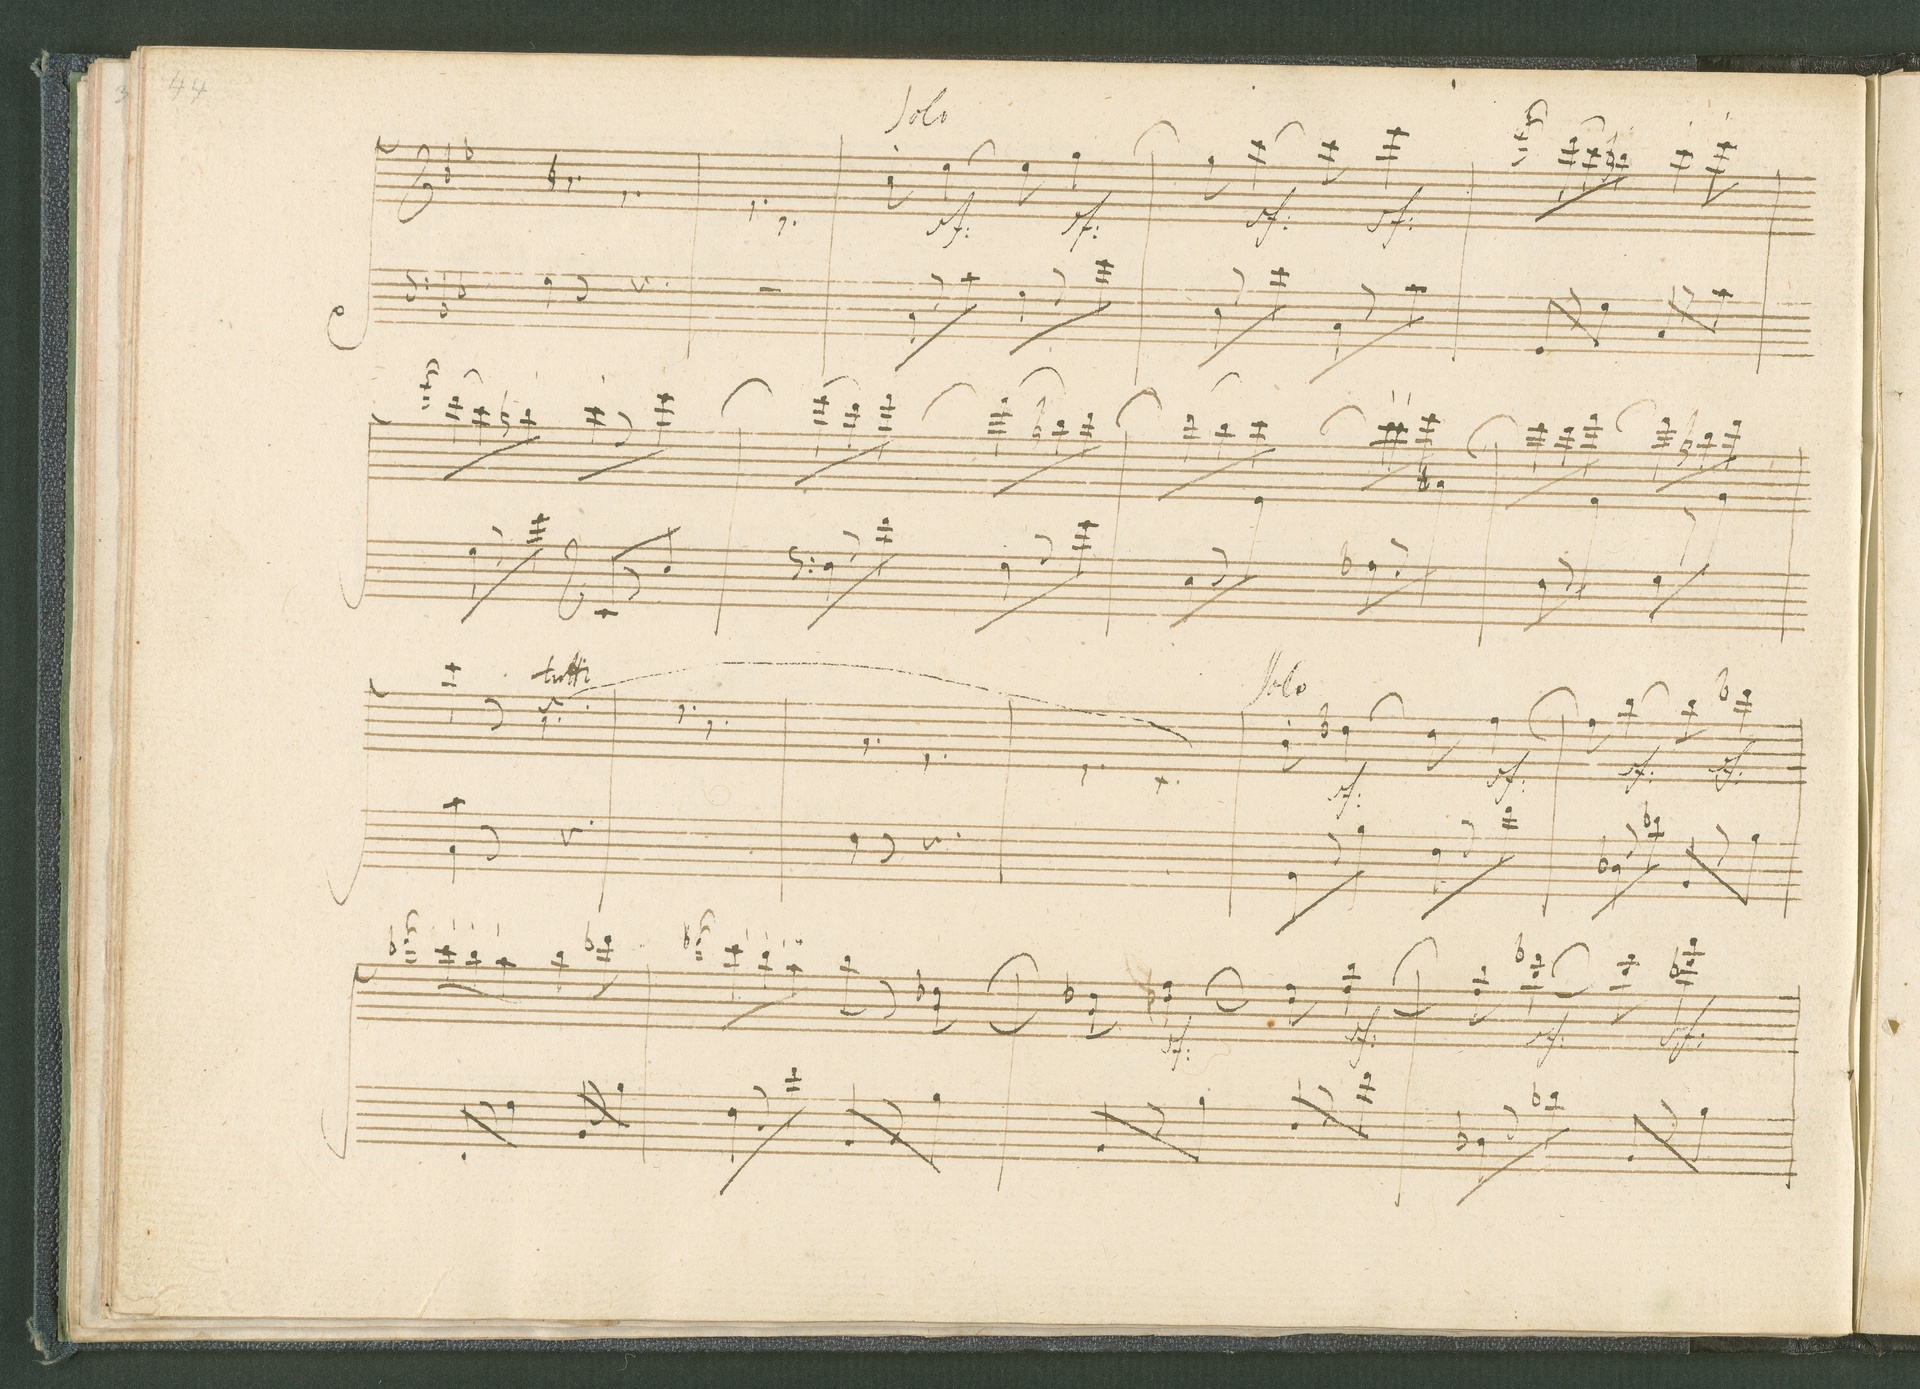 44
3
Solo
sf: sf: sf: sf:
tutti
Solo
sf: sf: sf: sf:
sf: sf: sf: sf: